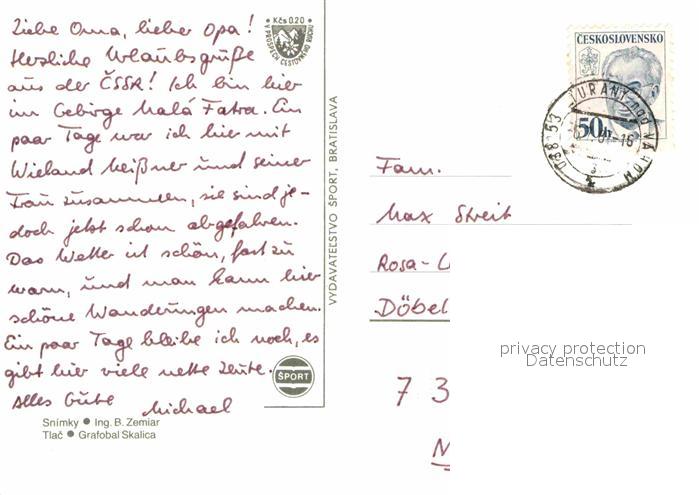 Liebe Oma, lieber Opa!
Herzliche Urlaubsgrüße
aus der ČSSR! Ich bin hier
im Gebirge Malá Fatra. Ein
paar Tage war ich hier mit
Wieland Meißner und seiner
Frau zusammen, sie sind je-
doch jetzt schon abgefahren.
Das Wetter ist schön, fast zu
warm, und man kann hier
schöne Wanderungen machen.
Ein paar Tage bleibe ich noch, es
gibt hier viele nette Leute.
Alles Gute
Michael
Snímky ● Ing. B. Zemiar
Tlač ● Grafobal Skalica
ŠPORT
• Kčs 0.20 •
V PROSPECH CESTOVNÉHO RUCHU
VYDAVATEĽSTVO ŠPORT, BRATISLAVA
ČESKOSLOVENSKO
50 h
038 53
TURANY nad VÁHOM
Fam.
Max Streit
Rosa-L
Döbel
7 3
privacy protection
Datenschutz